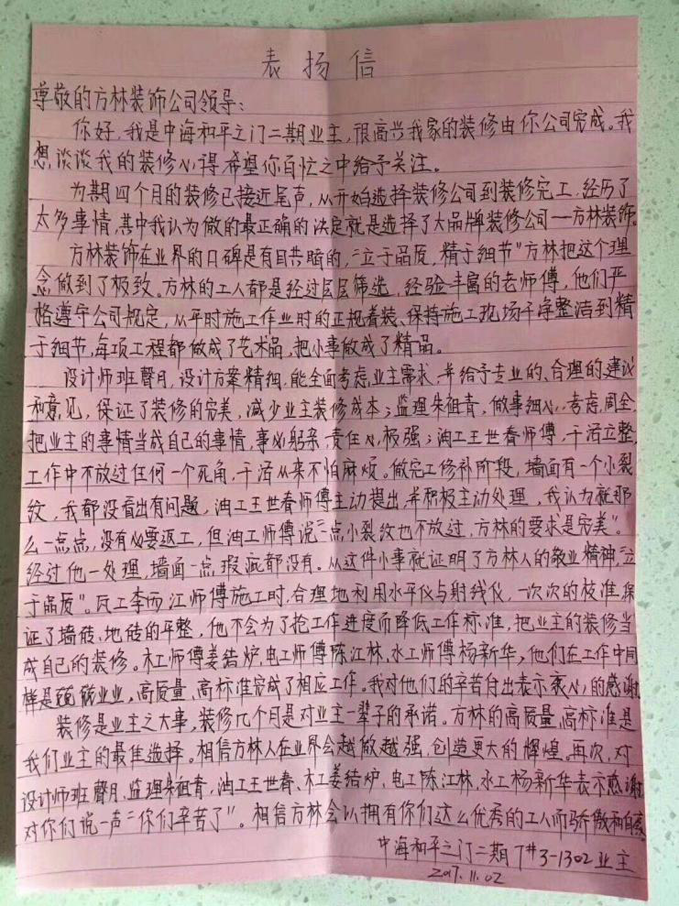 表扬信
尊敬的方林装饰公司领导:
你好,我是中海和平之门二期业主,很高兴我家的装修由你公司完成。我
想谈谈我的装修心得,希望你百忙之中给予关注。
为期四个月的装修已接近尾声,从开始选择装修公司到装修完工,经历了
太多事情,其中我认为做的最正确的决定就是选择了大品牌装修公司—方林装饰。
方林装饰在业界的口碑是有目共睹的,“立于品质,精于细节”方林把这个理
念做到了极致。方林的工人都是经过层层筛选,经验丰富的老师傅,他们严
格遵守公司规定,从平时施工作业时的正规着装、保持施工现场干净整洁到精
于细节,每项工程都做成了艺术品,把小事做成了精品。
设计师班馨月,设计方案精细,能全面考虑业主需求,并给予专业的、合理的建议
和意见,保证了装修的完美,减少业主装修成本;监理朱祖青,做事细心,考虑周全,
把业主的事情当成自己的事情,事必躬亲,责任心极强;油工王世春师傅,干活立整,
工作中不放过任何一个死角,干活从来不怕麻烦。做完工修补阶段,墙面有一个小裂
纹,我都没看出有问题,油工王世春师傅主动提出,并积极主动处理,我认为就那
么一点点,没有必要返工,但油工师傅说“一点小裂纹也不放过,方林的要求是完美”。
经过他一处理,墙面一点瑕疵都没有。从这件小事就证明了方林人的敬业精神,“立
于品质”。瓦工李西江师傅施工时,合理地利用水平仪与射线仪,一次次的校准,保
证了墙砖、地砖的平整,他不会为了抢工作进度而降低工作标准,把业主的装修当
成自己的装修。木工师傅姜结炉,电工师傅陈江林,水工师傅杨新华,他们在工作中同
样是兢兢业业,高质量、高标准完成了相应工作。我对他们的辛苦付出表示衷心的感谢
装修是业主之大事,装修几个月是对业主一辈子的承诺。方林的高质量,高标准是
我们业主的最佳选择。相信方林人在业界会越做越强,创造更大的辉煌。再次,对
设计师班馨月,监理朱祖青,油工王世春、木工姜结炉,电工陈江林,水工杨新华表示感谢
对你们说一声“你们辛苦了”。相信方林会以拥有你们这么优秀的工人而骄傲和自豪
中海和平之门二期7#3-1302业主
2017.11.02